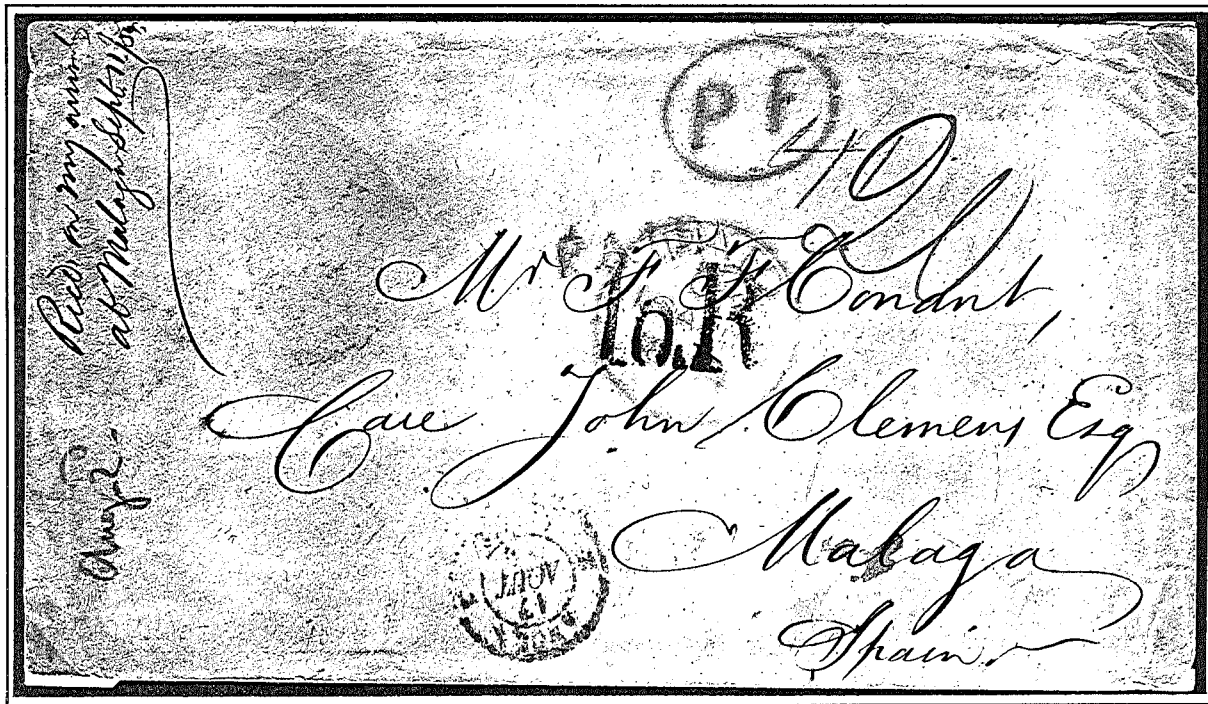 Recd on my arrival
at Malaga Sept. 11/62
P F
42
Mr F. F. Conant,
16. R
Care John Clemens Esq
Malaga
Spain.
AOUT